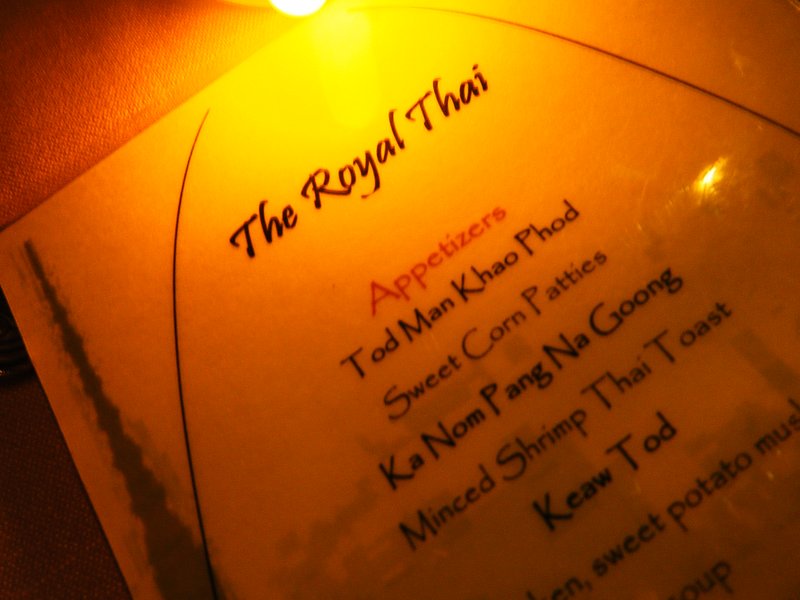 The Royal Thai
Appetizers
Tod Man Khao Phod
Sweet Corn Patties
Ka Nom Pang Na Goong
Minced Shrimp Thai Toast
Keaw Tod
sweet potato